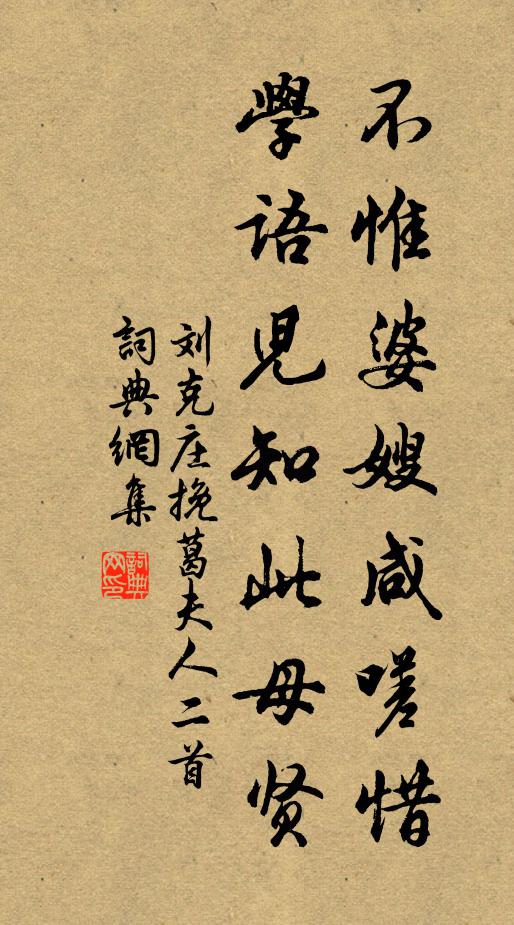 不惟婆嫂咸嗟惜
學語兒知此母贤
刘克庄挽葛夫人二首
詞典網集
詞典网印